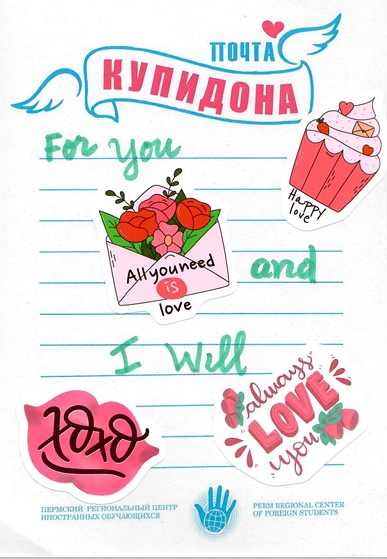 ПОЧТА
КУПИДОНА
For you
Happy
love
All you need
is
love
and
I Will
xoxo
always
LOVE
you
ПЕРМСКИЙ РЕГИОНАЛЬНЫЙ ЦЕНТР
ИНОСТРАННЫХ ОБУЧАЮЩИХСЯ
PERM REGIONAL CENTER
OF FOREIGN STUDENTS